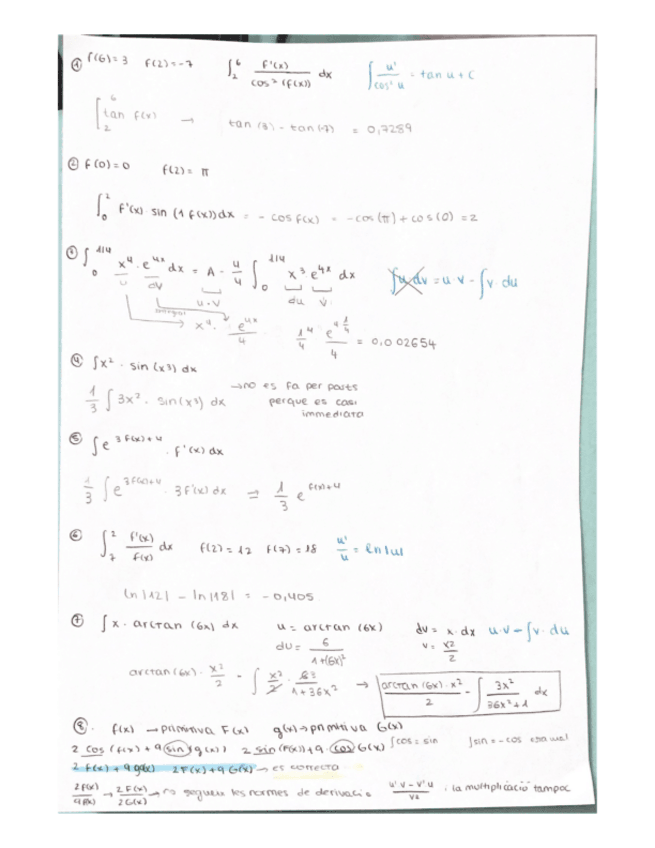 ① f(6)=3 f(2)=-7 ∫₂⁶ f'(x)/cos²(f(x)) dx ∫ u'/cos²u = tan u + c
[₂⁶ tan f(x) → tan(3) - tan(-7) = 0,7289
② f(0)=0 f(2)=π
∫₀² f'(x) sin (1 f(x)) dx = - cos f(x) = -cos(π) + cos(0) = 2
③ ∫₀^1/4 x⁴ · e^4x dx = A - 4/4 ∫₀^1/4 x³ e^4x dx ∫u dv = u·v - ∫v·du
u dv u·v du v
integral
→ x⁴ · e^4x/4 1/4⁴ · e^4·1/4 / 4 = 0,002654
④ ∫x² · sin(x³) dx
1/3 ∫ 3x² · sin(x³) dx → no es fa per parts
perque es casi
immediata
⑤ ∫e^3f(x)+4 · f'(x) dx
1/3 ∫ e^3f(x)+4 · 3f'(x) dx ⇒ 1/3 e^f(x)+4
⑥ ∫₇² f'(x)/f(x) dx f(2)=12 f(7)=18 u'/u = ln|u|
ln|12| - ln|18| = -0,405
⑦ ∫x · arctan(6x) dx u = arctan(6x) dv = x·dx u·v - ∫v·du
du = 6/1+(6x)² v = x²/2
arctan(6x) · x²/2 - ∫ x²/2 · 63/1+36x² → arctan(6x)·x²/2 - ∫ 3x²/36x²+1 dx
⑧. f(x) → primitiva F(x) g(x) → primitiva G(x)
2 cos(f(x)) + 9 sin(g(x)) 2 sin(F(x)) + 9 cos G(x) ∫cos = sin ∫sin = -cos
2 f(x) + 9 g(x) 2F(x) + 9 G(x) → es correcta
2f(x)/9f(x) → 2F(x)/2G(x) → no segueix les normes de derivació u'v - v'u/v² · la multiplicació tampoc